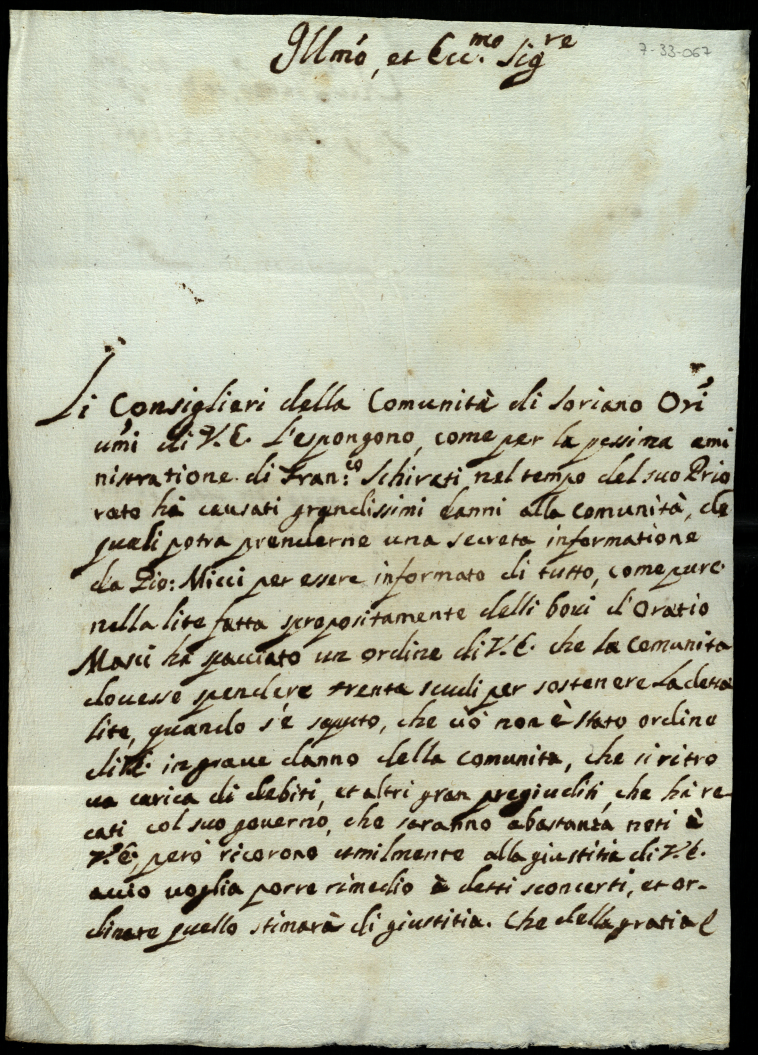 7-33-067
Illmo, et Ecc.mo Sigre
Li Consiglieri della Comunità di Soriano Ori
umi di V.E. L'espongono, come per la pessima ami
nistratione di Fran:co Schirati nel tempo del suo Prio
rato hà causati grandissimi danni alla Comunità, de
quali potra prenderne una secreta informatione
da Gio: Micci per essere informato di tutto, come pure
nella lite fatta spropositamente delli bovi d'Oratio
Masci hà spacciato un ordine di V.E. che la Comunita
dovesse spendere trenta scudi per sostenere la detta
lite, quando s'è saputo, che ciò non è stato ordine
di V.E. in grave danno della Comunita, che si ritro
va carica di debiti, et altri gran pregiuditi, che hà re
cati col suo governo, che saranno abastanza noti à
V.E., però ricorono umilmente alla giustitia di V.E.
accio voglia porre rimedio à detti sconcerti, et or-
dinare quello stimarà di giustitia. Che della gratia